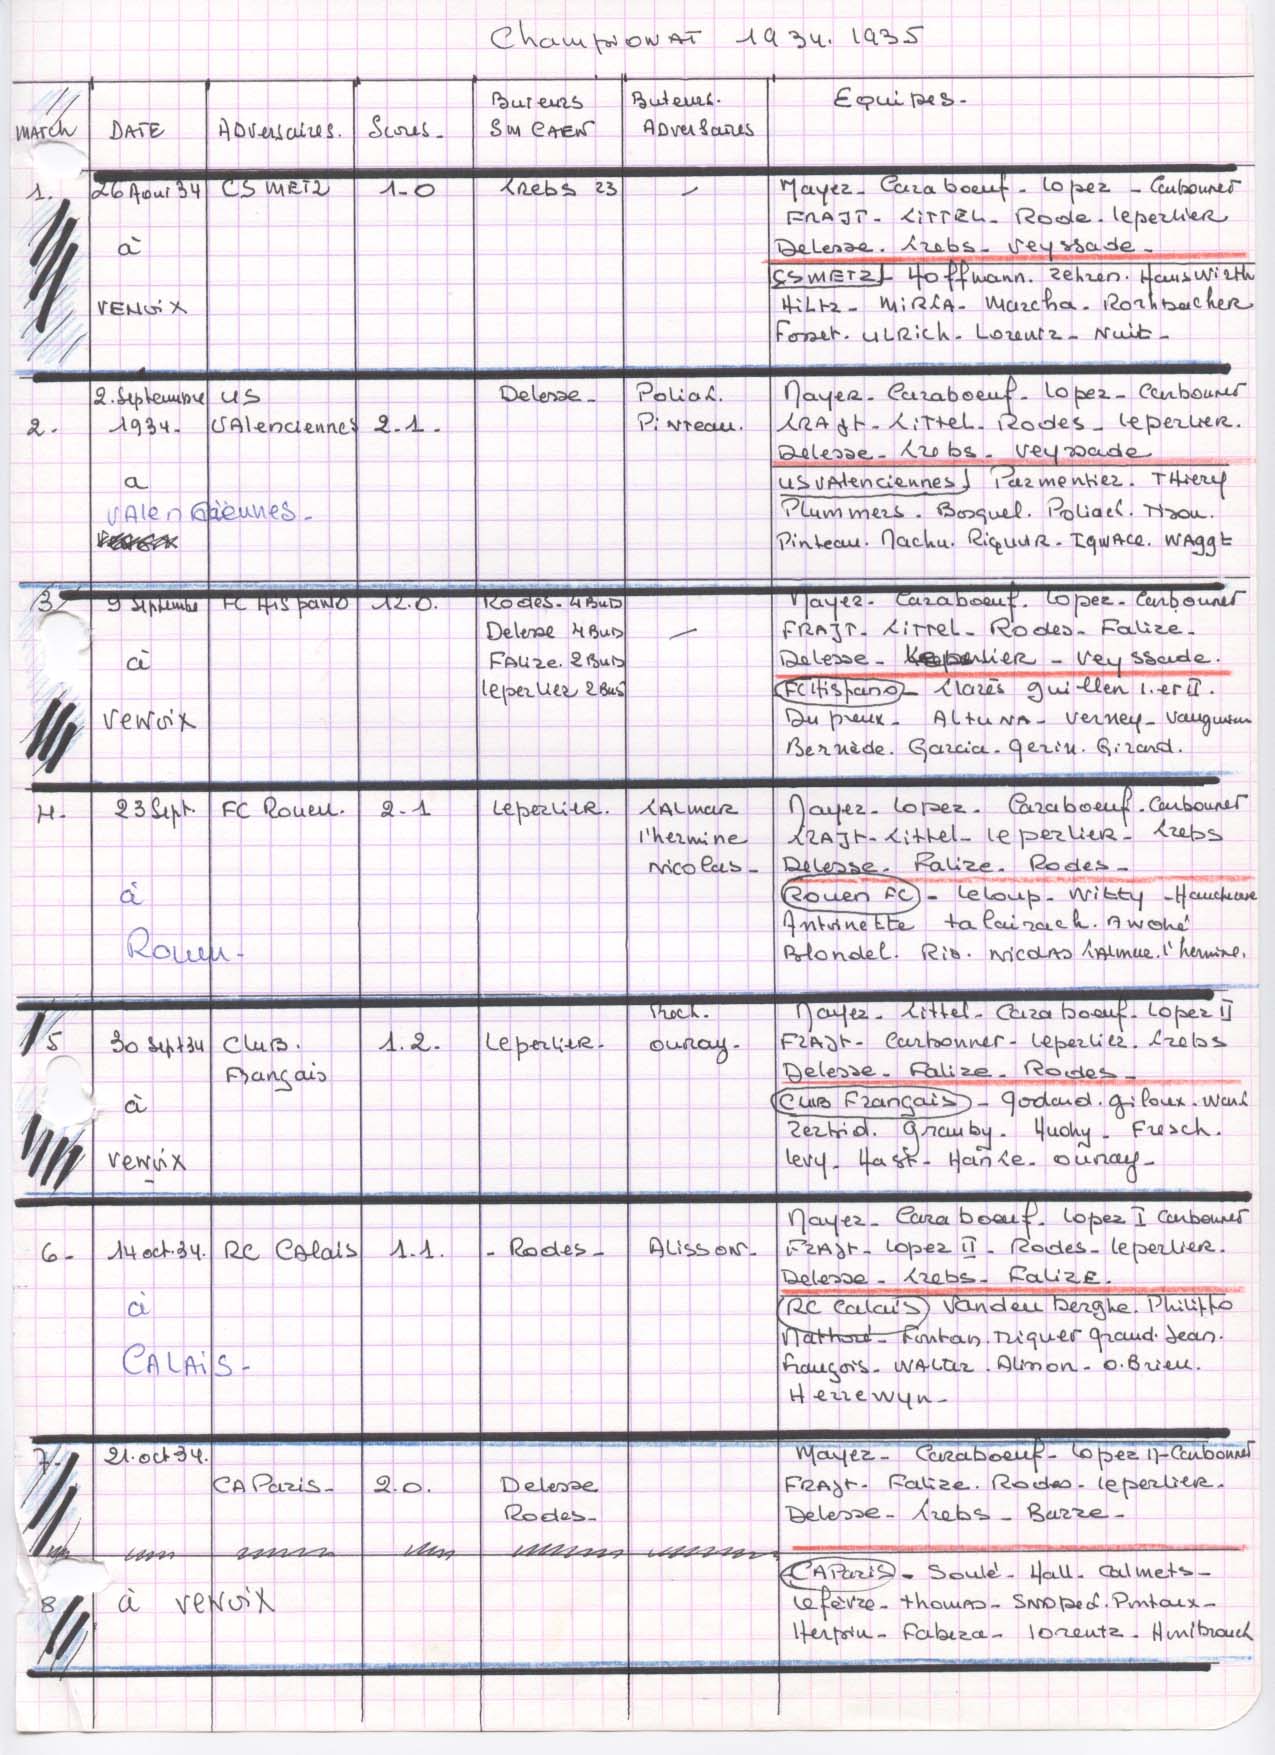 Championat 1934. 1935
MATCH DATE ADversaires. Scores- Buteurs SM CAEN Buteurs. ADversaires Equipes-
1. 26 Aout 34 CS METZ 1-0 Krebs 23 -
à
VENOIX
Mayez- Caraboeuf- Lopez - Carbonnet
FRAJT- KITTEL- Rode- leperlier
Delesse. Krebs- Veyssade-
CS METZ - Hoffmann. Zehren. Hauswirth
Hiltz- MIRKA- Marcha- Rohrbacher
Fosset. ULRich- Lorentz- Nuic-
2. 2. Septembre 1934. US VAlenciennes 2-1. Delesse- Poliak. Pinteau.
a
VAlenciennes-
Mayez- Caraboeuf- Lopez- Carbonnet
KRAJt- KiTTel- Rodes- leperlier.
Delesse- Krebs- Veyssade
US VAlenciennes Parmentier. THiery
Plummers. Bosquel. Poliack.
Pinteau. Machu. IgwAce. WAggt
3 9 Septembre FC Hispano 12.0. Rodes. 4 Buts -
Delesse 4 Buts
FAlize. 2 Buts
leperlier 2 Buts
à
Venoix
Mayez- Caraboeuf. Lopez- Carbonnet
FRAJT. Kittel- Rodes- Falize-
Delesse- leperlier - Veyssade.
FC Hispano - Klarès guillen 1. et II.
Dupreux- AltuNA- Verney-
Bernède. Garcia. Gerin. Girard.
4. 23 Sept. FC Rouen. 2-1 leperlier. KAlmar
l'hermine
Nicolas-
à
Rouen-
Mayez- Lopez- Caraboeuf. Carbonnet
KRAJt- Kittel- leperlier- Krebs
Delesse. Falize. Rodes-
Rouen FC - Leloup- Witty -
Antoinette talairach.
Blondel. Rio. Nicolas KAlmar. l'hermine.
5 30 Sept 34 CluB. Français 1.2. leperlier. ouray.
à
Venoix
Mayez- Kittel- Caraboeuf- Lopez II
FRAJt- Carbonner- leperlier. Krebs
Delesse- Falize- Rodes-
Club Français - godard. giloux.
Zerbid. Grauby. Huchy. Fresch.
levy. Hanke. ouray-
6- 14 oct. 34. RC CAlais 1.1. - Rodes- Alisson-
à
CALAiS-
Mayez- Caraboeuf- Lopez I Carbonnet
FRAJt- Lopez II - Rodes- leperlier.
Delesse- Krebs- FALIZE.
RC Calais Vandenberghe. Philippo
Finkan. Triquer grand. Jean.
François- WALter. Alisson- O.Brien.
Herrewyn-
7. 21. oct 34. CA Paris- 2.0. Delesse
Rodes-
Mayez- Caraboeuf- Lopez II- Carbonnet
FRAJt- Falize. Rodes- leperlier.
Delesse- Krebs- Barre-
8 à VENOIX
CA Paris - Soulé- Hall. Calmets-
Lefèvre- thomas-
Herpin- Fabeza- Lorentz-